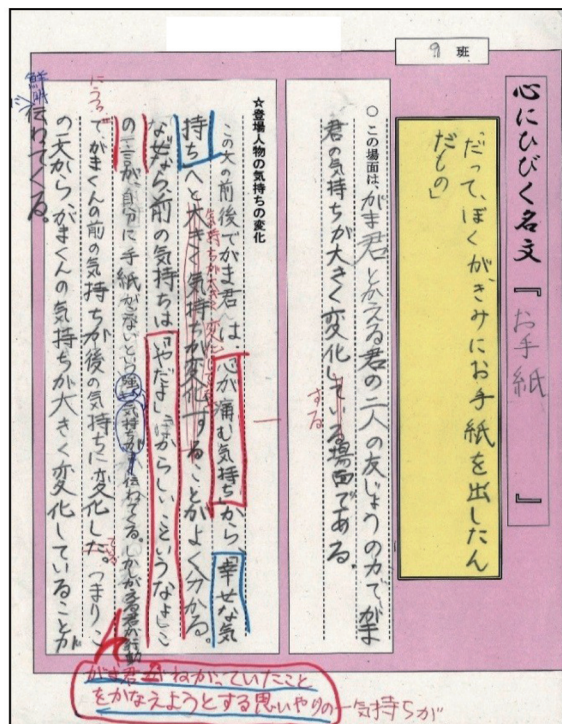 9 班
心にひびく名文『お手紙』
「だって、ぼくが、きみにお手紙を出したん
だもの」
○ この場面は、がま君とかえる君の二人の友じょうの力でがま
君の気持ちが大きく変化している場面である。
する
☆登場人物の気持ちの変化
この文の前後でがま君は、心が痛む気持ちから、幸せな気
持ちへと大きく気持ちが変化することがよく分かる。
なぜなら、前の気持ちは「やだよ」「ばからしいこというなよ」こ
の言が、自分に手紙がないという気持ちが伝わってくる。しかしかえる君が行動
でがまくんの前の気持ちが後の気持ちに変化した。つまりこ
の文から、がまくんの気持ちが大きく変化していることが
伝わってくる。
鮮明に
がま君がねがっていたこと
をかなえようとする思いやりの気持ちが